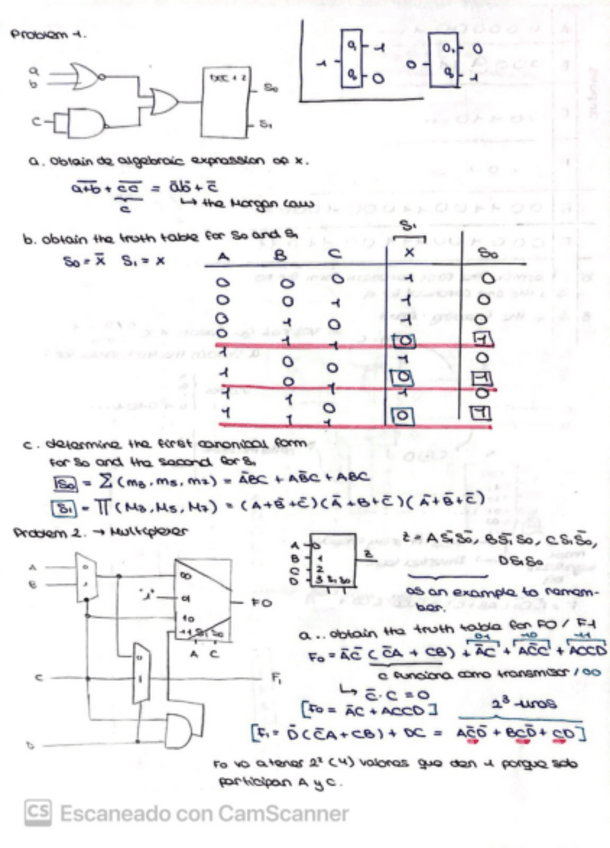 Problem 1.
a
b
C
DEC 1:2
S0
S1
1 0, 1
0, 0
0 0, 0
0, 1
a. Obtain de algebraic expression of x.
a̅+̅b̅ + c̅c̅ = a̅b̅ + c̅
c̅ ↳ the Morgan Law
b. obtain the truth table for S0 and S1
S0 = x̅ S1 = x
S1
A B C X S0
0 0 0 1 0
0 0 1 1 0
0 1 0 1 0
0 1 1 0 1
1 0 0 1 0
1 0 1 0 1
1 1 0 1 0
1 1 1 0 1
c. determine the first canonical form
for S0 and the second for S1
S0 = Σ (m3, m5, m7) = A̅BC + AB̅C + ABC
S1 = ∏ (M3, M5, M7) = (A+B̅+C̅)(A̅+B+C̅)(A̅+B̅+C̅)
Problem 2. → Multiplexer
A 0
B 1
C 2
D 3 S1 S0
Z
Z = A S̅1S̅0, B S̅1 S0, C S1S̅0,
D S1 S0
as an example to remem-
ber.
A
B
0
1
00
"1" 01
10
11 S1 S0
A C
F0
C
F1
D
a.. obtain the truth table for F0 / F1
01 10 11
F0 = A̅C̅ (C̅A + CB) + A̅C + AC̅C + ACCD
C funciona como transmisor / 00
↳ C̅·C = 0
[F0 = A̅C + ACCD]
2³ unos
[F1 = D̅(C̅A + CB) + DC = AC̅D̅ + BCD̅ + CD]
F0 va a tener 2² (4) valores que den 1 porque solo
participan A y C.
CS Escaneado con CamScanner